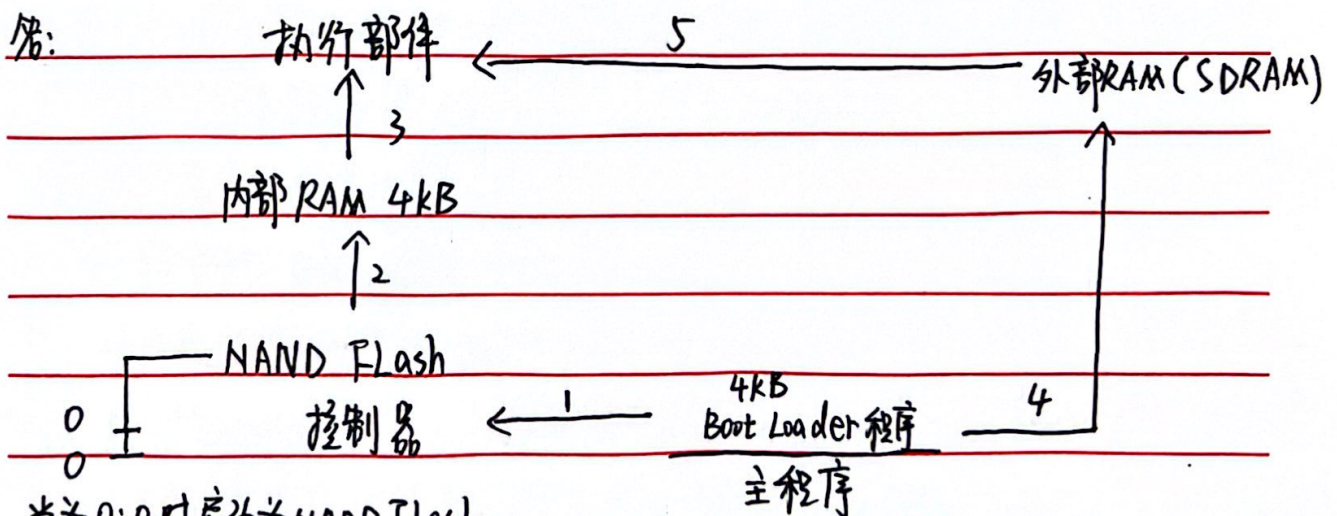 答:
执行部件
5
外部RAM(SDRAM)
3
内部RAM 4kB
2
NAND FLash
控制器
0
0
1
4kB
Boot Loader程序
4
主程序